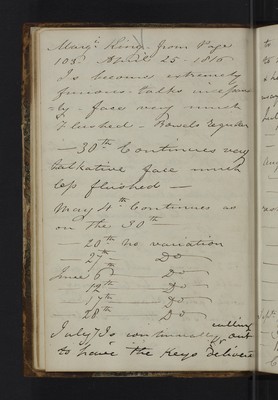 Margt. King - from Page
103. April 25 - 1816
Is become extremely
furious - talks incessant
=ly - face very much
flushed - Bowels regular
- 30th Continues very
talkative face much
less flushed -
May 4th Continues as
on the 30th
- 20th No variation
- 27th Do
June 6th Do
- 12th Do
- 17th Do
- 28th Do
July 7 Is continually calling out
to have the Keys deliver